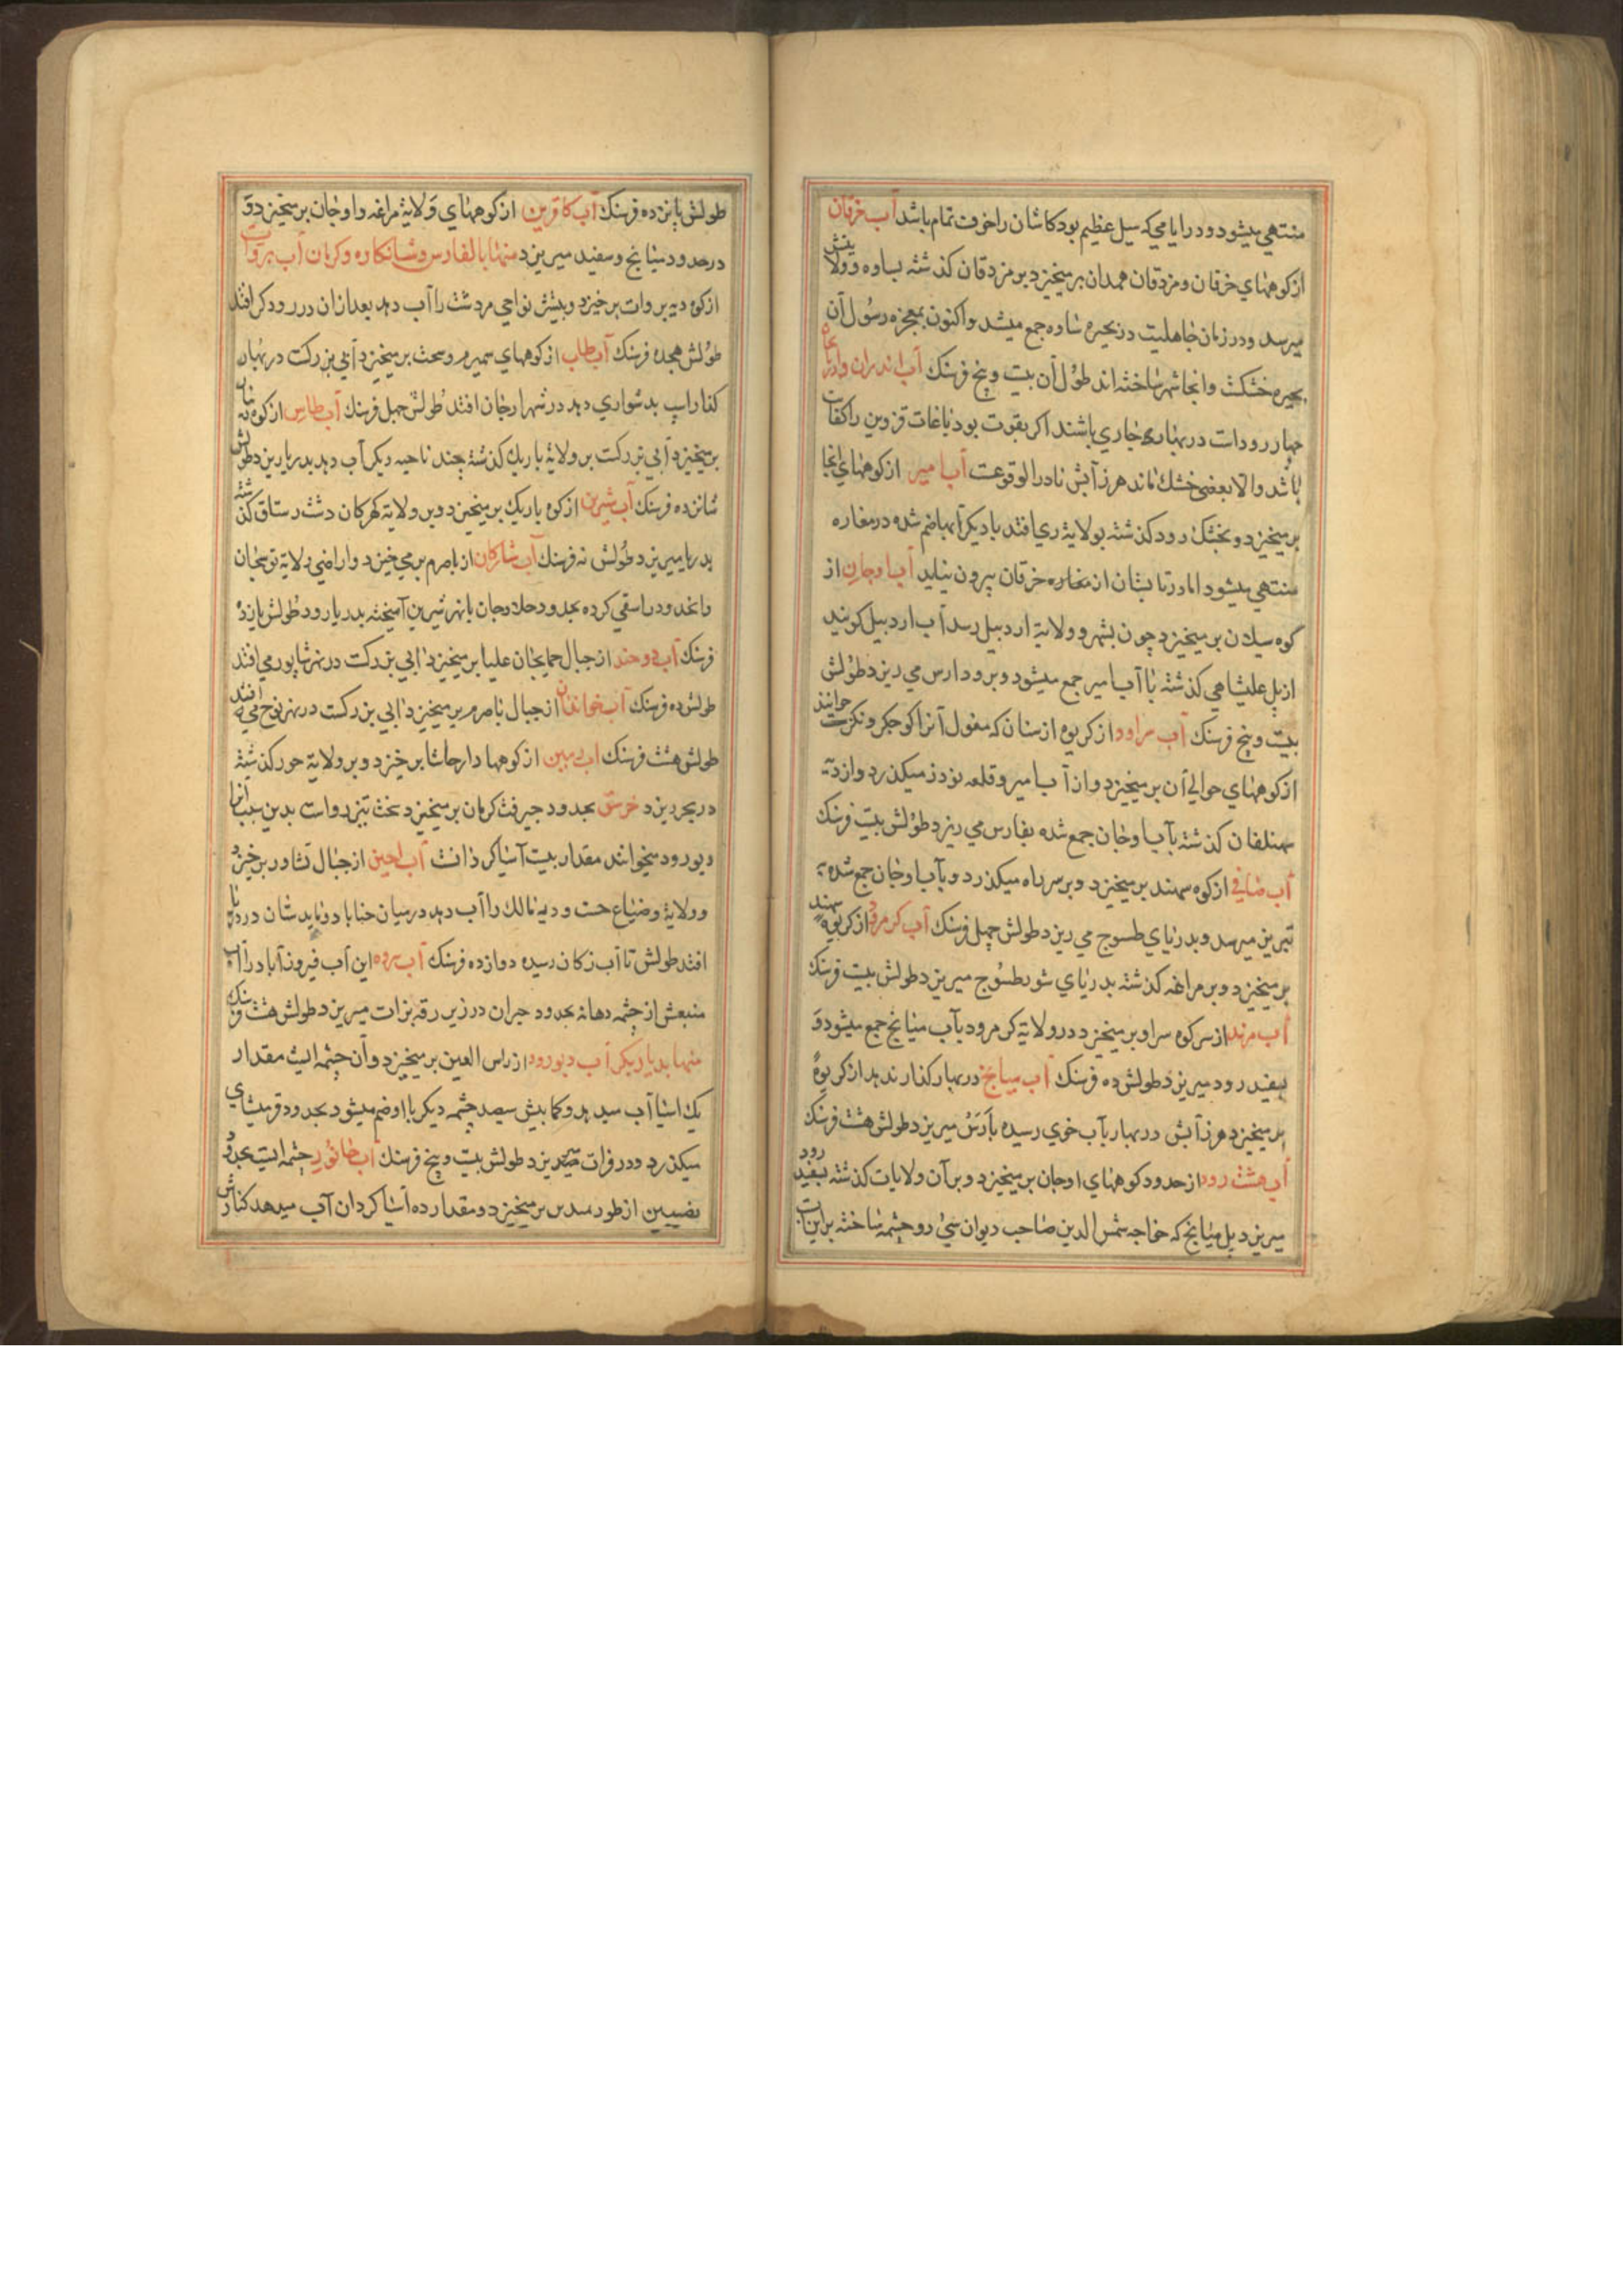 منتهی میشود و در ایامی که سیل عظیم بود کاشان را خوف تمام باشد آب خرقان
از کوههای خرقان و مزدقان همدان برمیخیزد بر مزدقان کذشته بساوه و ولاینش
میرسد و در زمان جاهلیت در بحیره ساوه جمع میشد و اکنون بمعجزه رسول آن
بحیره خشکست و انجا شهر ساخته اند طول آن بیست و پنج فرسنک آب اندران
چهار رود است در بهار جاری باشند اکر بقوت بود باغات قزوین را کفاف
باشد والا بعضی خشک ماند هرز آبش نادر الوقوعست آب امیر از کوههای انجا
برمیخیزد و بخشک رود کذشته بولایة ری افتد با دیکر آبها ضم شده در مغاره
منتهی میشود اما در تابستان از مغاره خرقان بیرون نیاید آب اوجان از
کوه سیلان برمیخیزد چون بشهر و ولایة اردبیل رسد آب اردبیل کویند
از پل علیشاهی کذشته با آب امیر جمع میشود و برود ارس می ریزد طولش
بیست و پنج فرسنک آب سراوود از کریوه ازسنان که مغول آنرا کوجکر خوانند
از کوههای حوالی آن برمیخیزد و از آب امیر و قلعه نودز میکذرد و از ده
سهنلفان کذشته بآب اوجان جمع شده بفارس می ریزد طولش بیست فرسنک
آب صافی از کوه سهند برمیخیزد و بر سر راه میکذرد و بآب اوجان جمع شده به
تبریز میرسد و بدریای طسوج می ریزد طولش چهل فرسنک آب کرمرود از کریوه سهند
برمیخیزد و بر مراغه کذشته بدریای شور طسوج میریزد طولش بیست فرسنک
آب مرند از سر کوه سراو برمیخیزد در ولایة کرمرود بآب میانج جمع میشود و
بسفید رود میریزد طولش ده فرسنک آب میانج در بهار کذار ندهد از کریوه
برمیخیزد هرز آبش در بهار بآب خوی رسیده بارس میریزد طولش هشت فرسنک
آب هشت رود از حدود کوههای اوجان برمیخیزد و بر آن ولایات کذشته بسفید رود
میریزد پل میانج که خواجه شمس الدین صاحب دیوان سی و دو چشمه ساخته بر این آب
طولش پانزده فرسنک آب کاقرین از کوههای ولایة مراغه و اوجان برمیخیزد و
در حدود میانج و سفید میریزد منها بالفارس و شبانکاره و کرمان آب برواب
از کوه دیه بروات برخیزد و بیشتر نواحی مردشت را آب دهد بعد از ان در رود کر افتد
طولش هجده فرسنک آب طاب از کوههای سمیرم و سحت برمیخیزد آبی بزرکست در بهار
کذار اسپ بدشواری دهد در شهر ارجان افتد طولش چهل فرسنک آب طاس از کوه
برمیخیزد آبی بزرکست بر ولایة باریک کذشته چند ناحیه دیکر آب دهد بدریا ریزد طولش
شانزده فرسنک آب شیرین از کوه باریک برمیخیزد و بر ولایة کهرکان دشت رستاق کذشته
بدریا میریزد طولش نه فرسنک آب شارکان از باصرم برمی خیزد و اراضی ولایة
و انحدود را سقی کرده بحدود جلادجان بانهر شیرین آمیخته بدریا رود طولش یازده
فرسنک آب دوخند از جبال حمایجان علیا برمیخیزد ابی بزرکست در نهر شاپور می افتد
طولش ده فرسنک آب خوابدان از جبال باصرم برمیخیزد ابی بزرکست در نهر نوح می افتد
طولش هشت فرسنک اب مبین از کوهها دارجاشا برخیزد و بر ولایة حور کذشته
در بحر ریزد خرشق بحدود جیرفت کرمان برمیخیزد سخت تیز رواست بدین سبب آنرا
دیورود میخوانند مقدار بیست آسیا کردانست آب احین از جبال تشاور برخیزد
و ولایة و ضیاع حست و دیه مالک را آب دهد در میان جنابا دو نابد شان در دریا
افتد طولش تا آب زکان رسیده دوازده فرسنک آب برده این آب فیروزآباد را آب
منبعش از چشمه دهانه بحدود حیران در زیر رقه بزات میریزد طولش هشت فرسنک
منها بدیار بکر آب دیورود از راس العین برمیخیزد و آن چشمه ایست مقدار
یک اسیا آب میدهد و کمابیش سیصد چشمه دیکر با او ضم میشود بحدود قرمیشای
میکذرد و در فرات میریزد طولش بیست و پنج فرسنک آب خابور چشمه ایست بحدود
نصیبین از طور سدس برمیخیزد و مقدار ده آسیا کردان آب میدهد کنارش